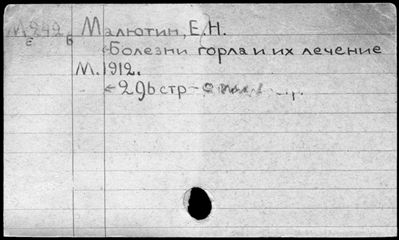 М 242 Малютин, Е.Н.
Болезни горла и их лечение
М. 1912.
296 стр